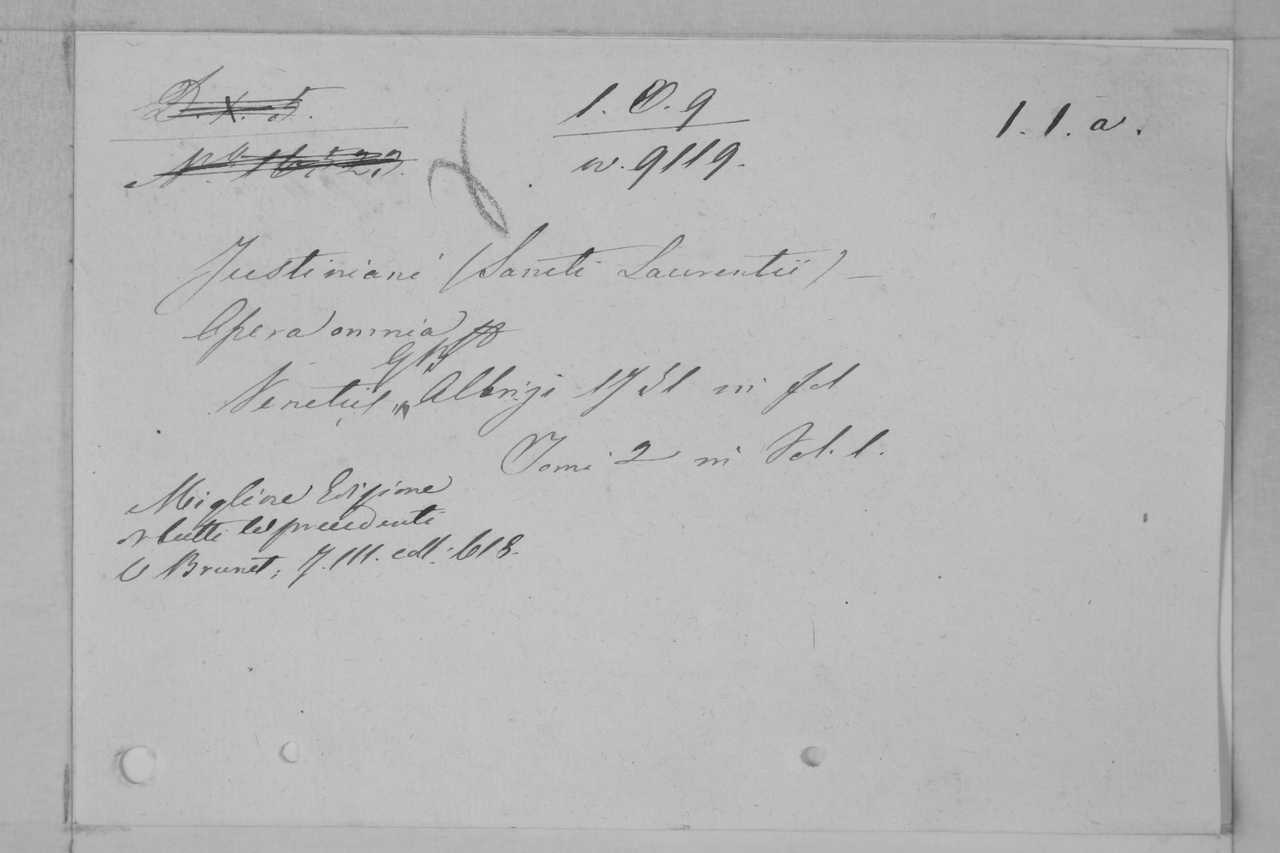 D. X. 5.
1. O. 9
1. 1. a.
N.º 16
n. 9119.
Justiniani (Sancti Laurentii) —
Opera omnia
Venetiis Albrizi 1751 in fol
Tomi 2 in Vol. 1.
Migliore Edizione
di tutte le precedenti
V Brunet, T. III. coll. 618.